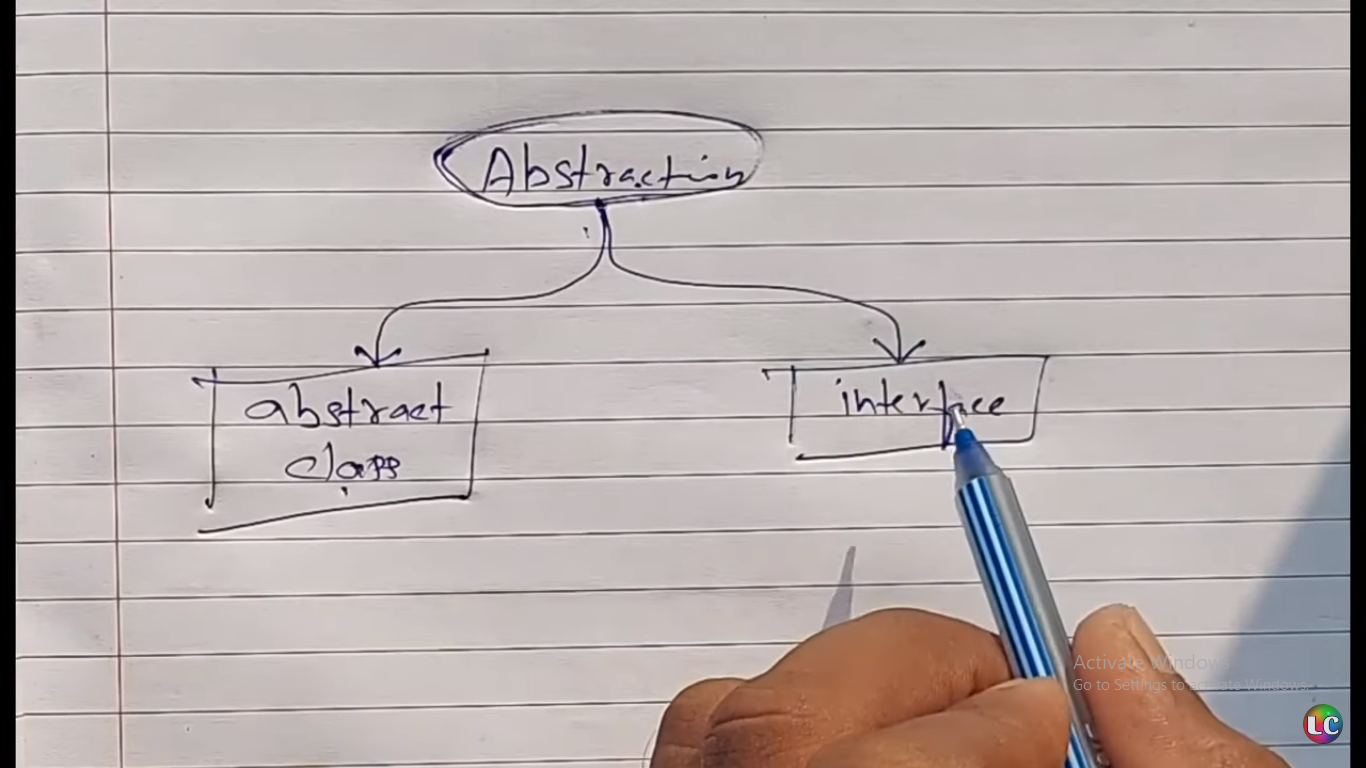 Abstraction
abstract
class
interface
Activate Windows
Go to Settings to activate Windows.
LC